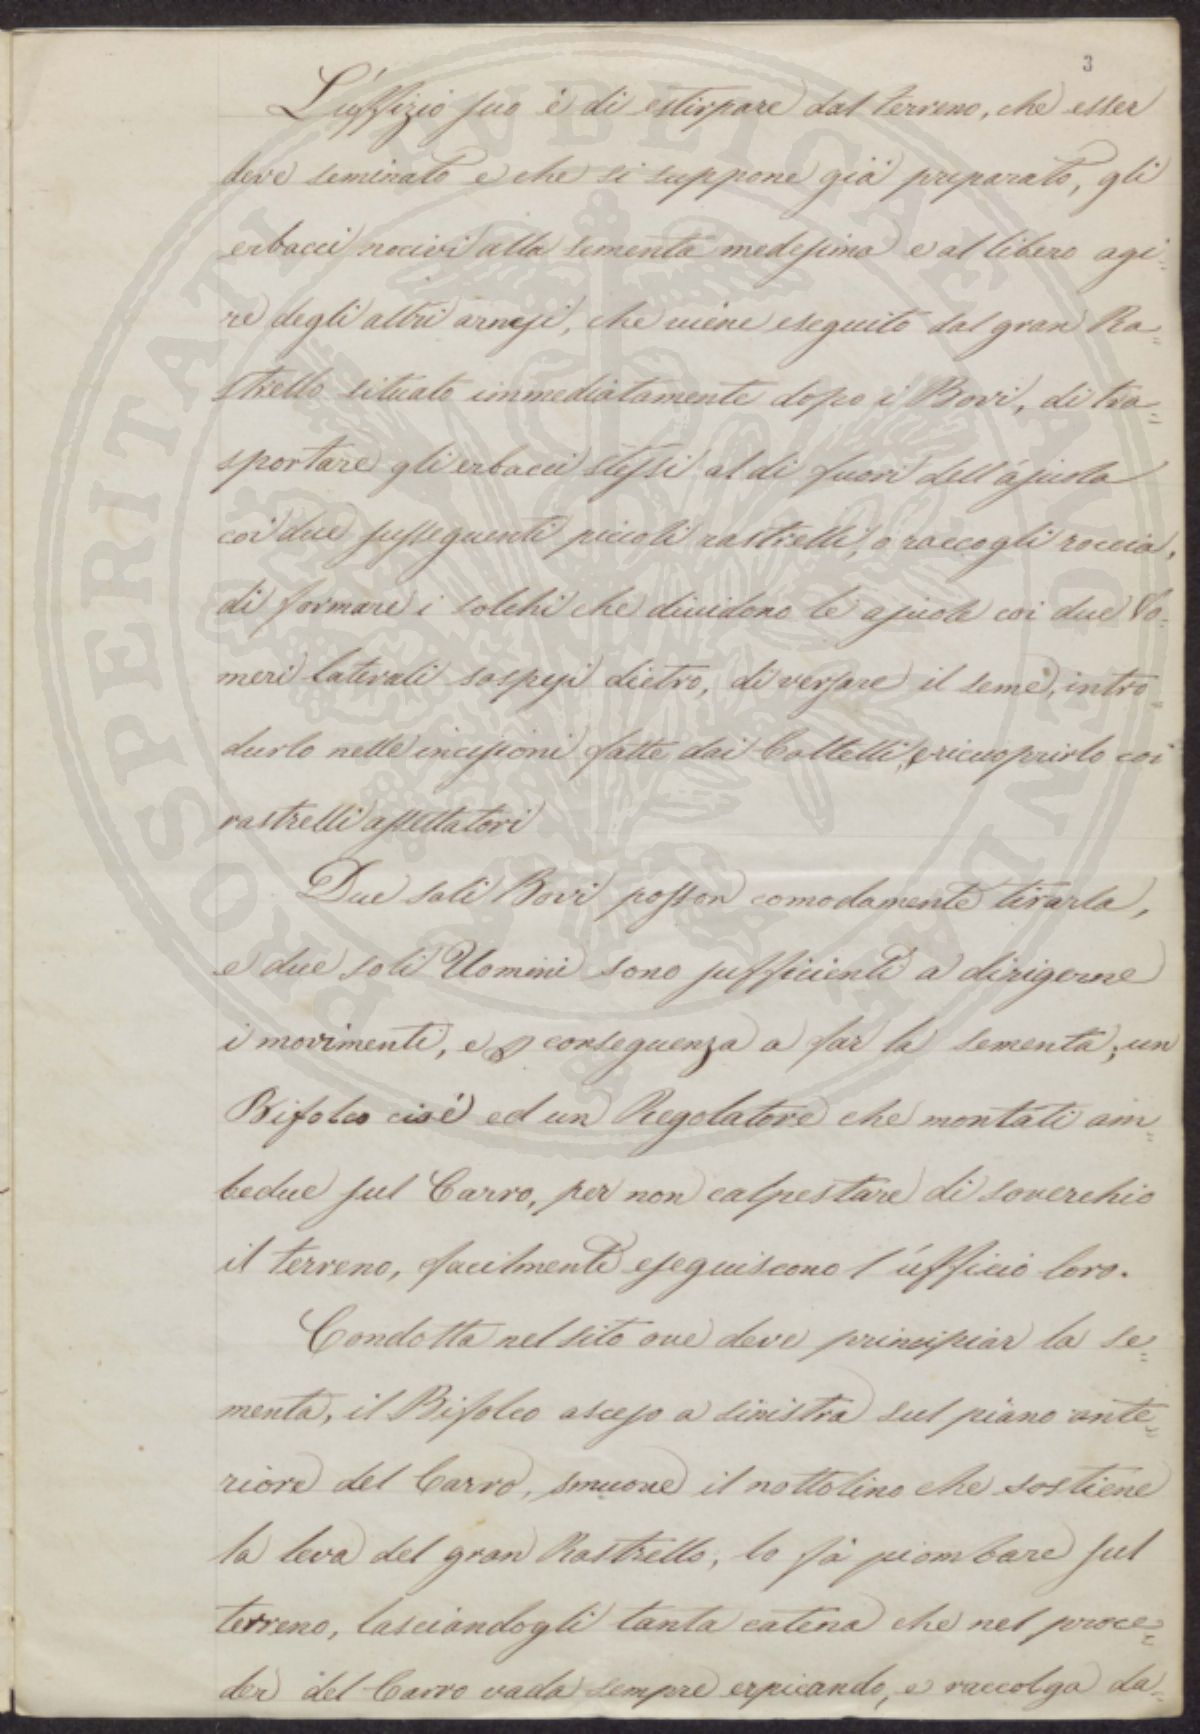 3
L'uffizio suo è di estirpare dal terreno, che esser
deve seminato e che si suppone già preparato, gli
erbacci nocivi alla sementa medesima e al libero agi=
re degli altri arnesi, che viene eseguito dal gran Ra=
strello situato immediatamente dopo i Bovi, di tra=
sportare gli erbacci stessi al di fuori dell'ajuola
coi due susseguenti piccoli rastrelli, o raccogli roccia,
di formare i solchi che dividono le ajuole coi due Vo=
meri laterali sospesi dietro, di versare il seme, intro=
durlo nelle incisioni fatte dai Coltelli, ricuoprirlo coi
rastrelli assettatori
Due soli Bovi posson comodamente tirarla,
e due soli Uomini sono sufficienti a dirigerne
i movimenti, e p conseguenza a far la sementa; un
Bifolco cioè ed un Regolatore che montati am=
bedue sul Carro, per non calpestare di soverchio
il terreno, facilmente eseguiscono l'ufficio loro.
Condotta nel sito ove deve principiar la se=
menta, il Bifolco asceso a sinistra sul piano ante=
riore del Carro, smuove il nottolino che sostiene
la leva del gran Rastrello, lo fà piombare sul
terreno, lasciandogli tanta catena che nel proce=
der del Carro vada sempre erpicando, e raccolga da=
PROSPERITATI PVBLICAE AVGENDAE